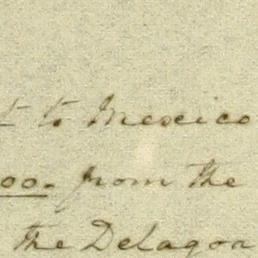 t to Mexico
00. from the
the Delagoa